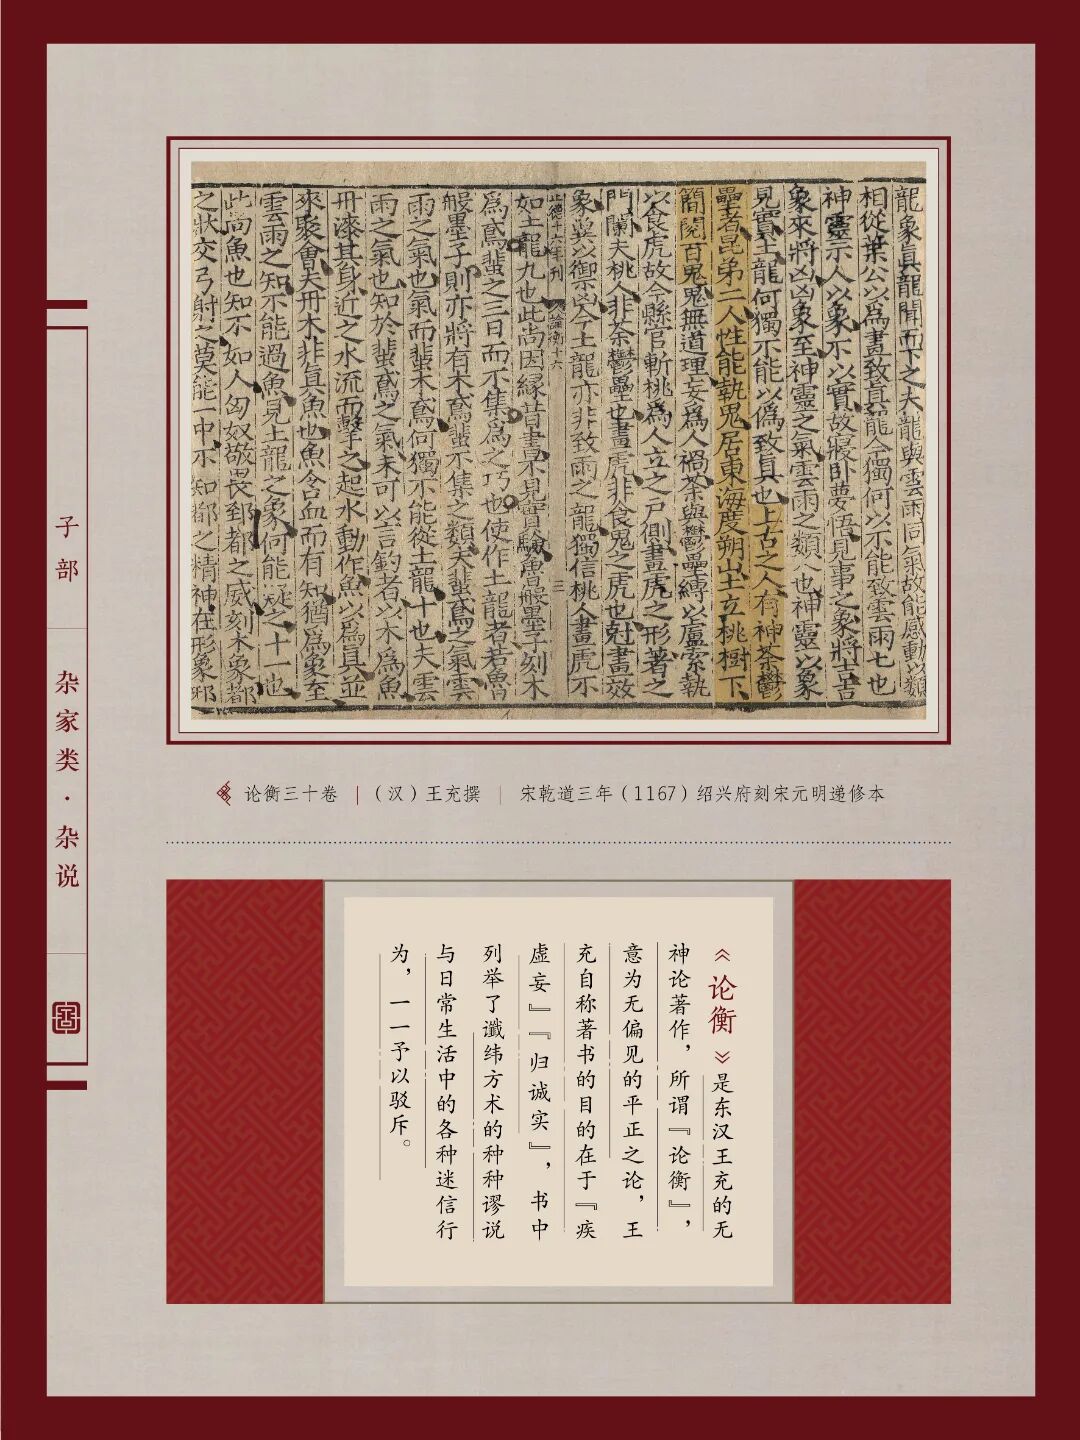 龍象眞龍聞而下之夫龍與雲雨同氣故能感動以類
相從葉公以爲畫致眞龍今獨何以不能致雲雨七也
神靈示人以象不以實故寢卧夢悟見事之象將吉吉
象來將凶凶象至神靈之氣雲雨之類八也神靈以象
見實土龍何獨不能以僞致眞也上古之人有神荼鬱
壘者昆弟二人性能執鬼居東海度朔山上立桃樹下
簡閱百鬼鬼無道理妄爲人禍荼與鬱壘縛以盧索執
以食虎故今縣官斬桃爲人立之戶側畫虎之形著之
門闌夫桃人非荼鬱壘也畫虎非食鬼之虎也尅畫效
象冀以御凶土龍亦非致雨之龍獨信桃人畫虎不
正德十六年刊 論衡十六 三
如土龍九也此尚因緣昔書不見實驗魯般墨子刻木
爲鳶蜚之三日而不集爲之巧也使作土龍者若魯
般墨子則亦將有木鳶蜚不集之類夫蜚鳶之氣雲
雨之氣也氣而蜚木鳶何獨不能從土龍十也夫雲
雨之氣也知於蜚鳶之氣未可以言釣者以木爲魚
丹漆其身近之水流而擊之起水動作魚以爲眞並
來聚會夫丹木非眞魚也魚含血而有知猶爲象至
雲雨之知不能過魚見土龍之象何能疑之十一也
此尚魚也知不如人匈奴敬畏郅都之威刻木象都
之狀交弓射之莫能一中不知都之精神在形象邪
子部
杂家类·杂说
论衡三十卷 |（汉）王充撰 | 宋乾道三年（1167）绍兴府刻宋元明递修本
《论衡》是东汉王充的无
神论著作，所谓『论衡』，
意为无偏见的平正之论，王
充自称著书的目的在于『疾
虚妄』『归诚实』，书中
列举了谶纬方术的种种谬说
与日常生活中的各种迷信行
为，一一予以驳斥。